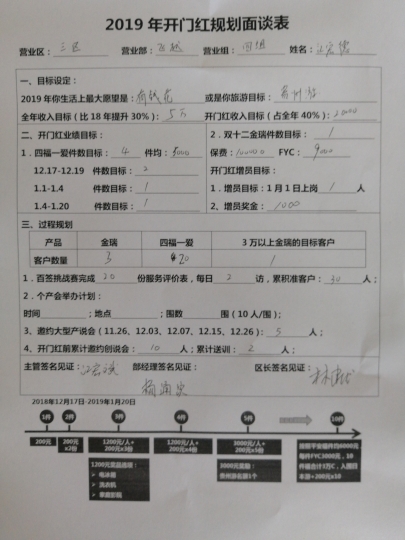 2019 年开门红规划面谈表
营业区：三区 营业部：飞越 营业组：四组 姓名：
一、目标设定：
2019 年你生活上最大愿望是：有钱花 或是你旅游目标：贵州
全年收入目标（比 18 年提升 30%）：5万 开门红收入目标（占全年 40%）：20000
二、开门红业绩目标： 2：双十二金瑞件数目标：1
1．四福一爱件数目标：4 件均：5000 保费：100000 FYC：9000
12.17-12.19 件数目标：2 开门红增员目标：
1.1-1.4 件数目标：1 1．增员目标：1 月 1 日上岗 1 人
1.4-1.20 件数目标：1 2、增员奖金：1000
三、过程规划
产品 金瑞 四福一爱 3 万以上金瑞的目标客户
客户数量 3 20 1
1．百签挑战赛完成 20 份服务评价表，每日 2 访，累积准客户：30 人；
2．个产会举办计划：
时间 ；地点 ；围数 围（10 人/围）；
3、邀约大型产说会（11.26、12.03、12.07、12.15、12.26）：5 人；
4、开门红前累计邀约创说会：10 人；累计送训：2 人；
主管签名见证： 部经理签名见证： 区长签名见证：
2018年12月17日-2019年1月20日
1件 2件 3件 4件 5件 10件
200元 200元x2份 1200元/人+200元x3份 1200元/人+200元x4份 3000元/人+200元x5份
1200元奖品选项：
➢ 电冰箱
➢ 洗衣机
➢ 家庭影院
3000元奖励：
贵州游名额1个